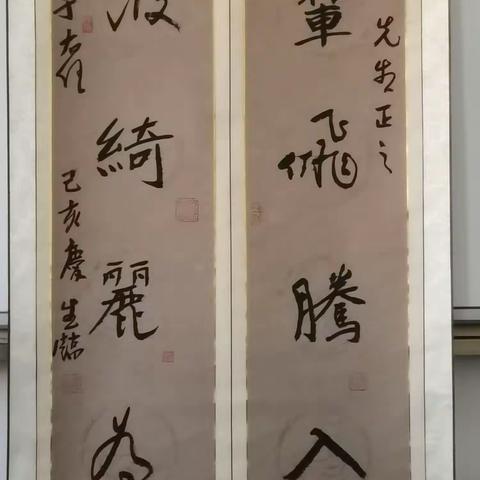 先生正之
輩飛騰入
波綺麗為
于右任
己亥慶生臨